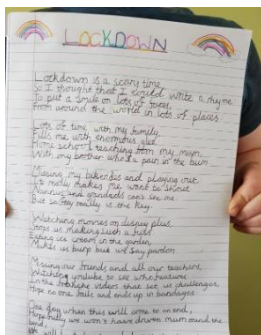 LOCKDOWN
Lockdown is a scary time
So I thought that I could write a rhyme
To put a smile on lots of faces
From around the world in lots of places
Lots of time with my family
Fills me with enormous glee
Home school teaching from my mum
With my brother who's a pain in the bum
Missing my friends and playing out
It really makes me want to
Nannies and grandads cant see me
But safety really is the key
Watching movies on disney plus
Stops us making such a fuss
Eating ice cream in the garden
Makes us burp but we say pardon
Missing our friends and all our teachers
Watching youtube to see
In the videos that see us challenges
Hope no one falls and ends up in bandages
One day when this will come to an end
Hopefully we won't have driven mum round the